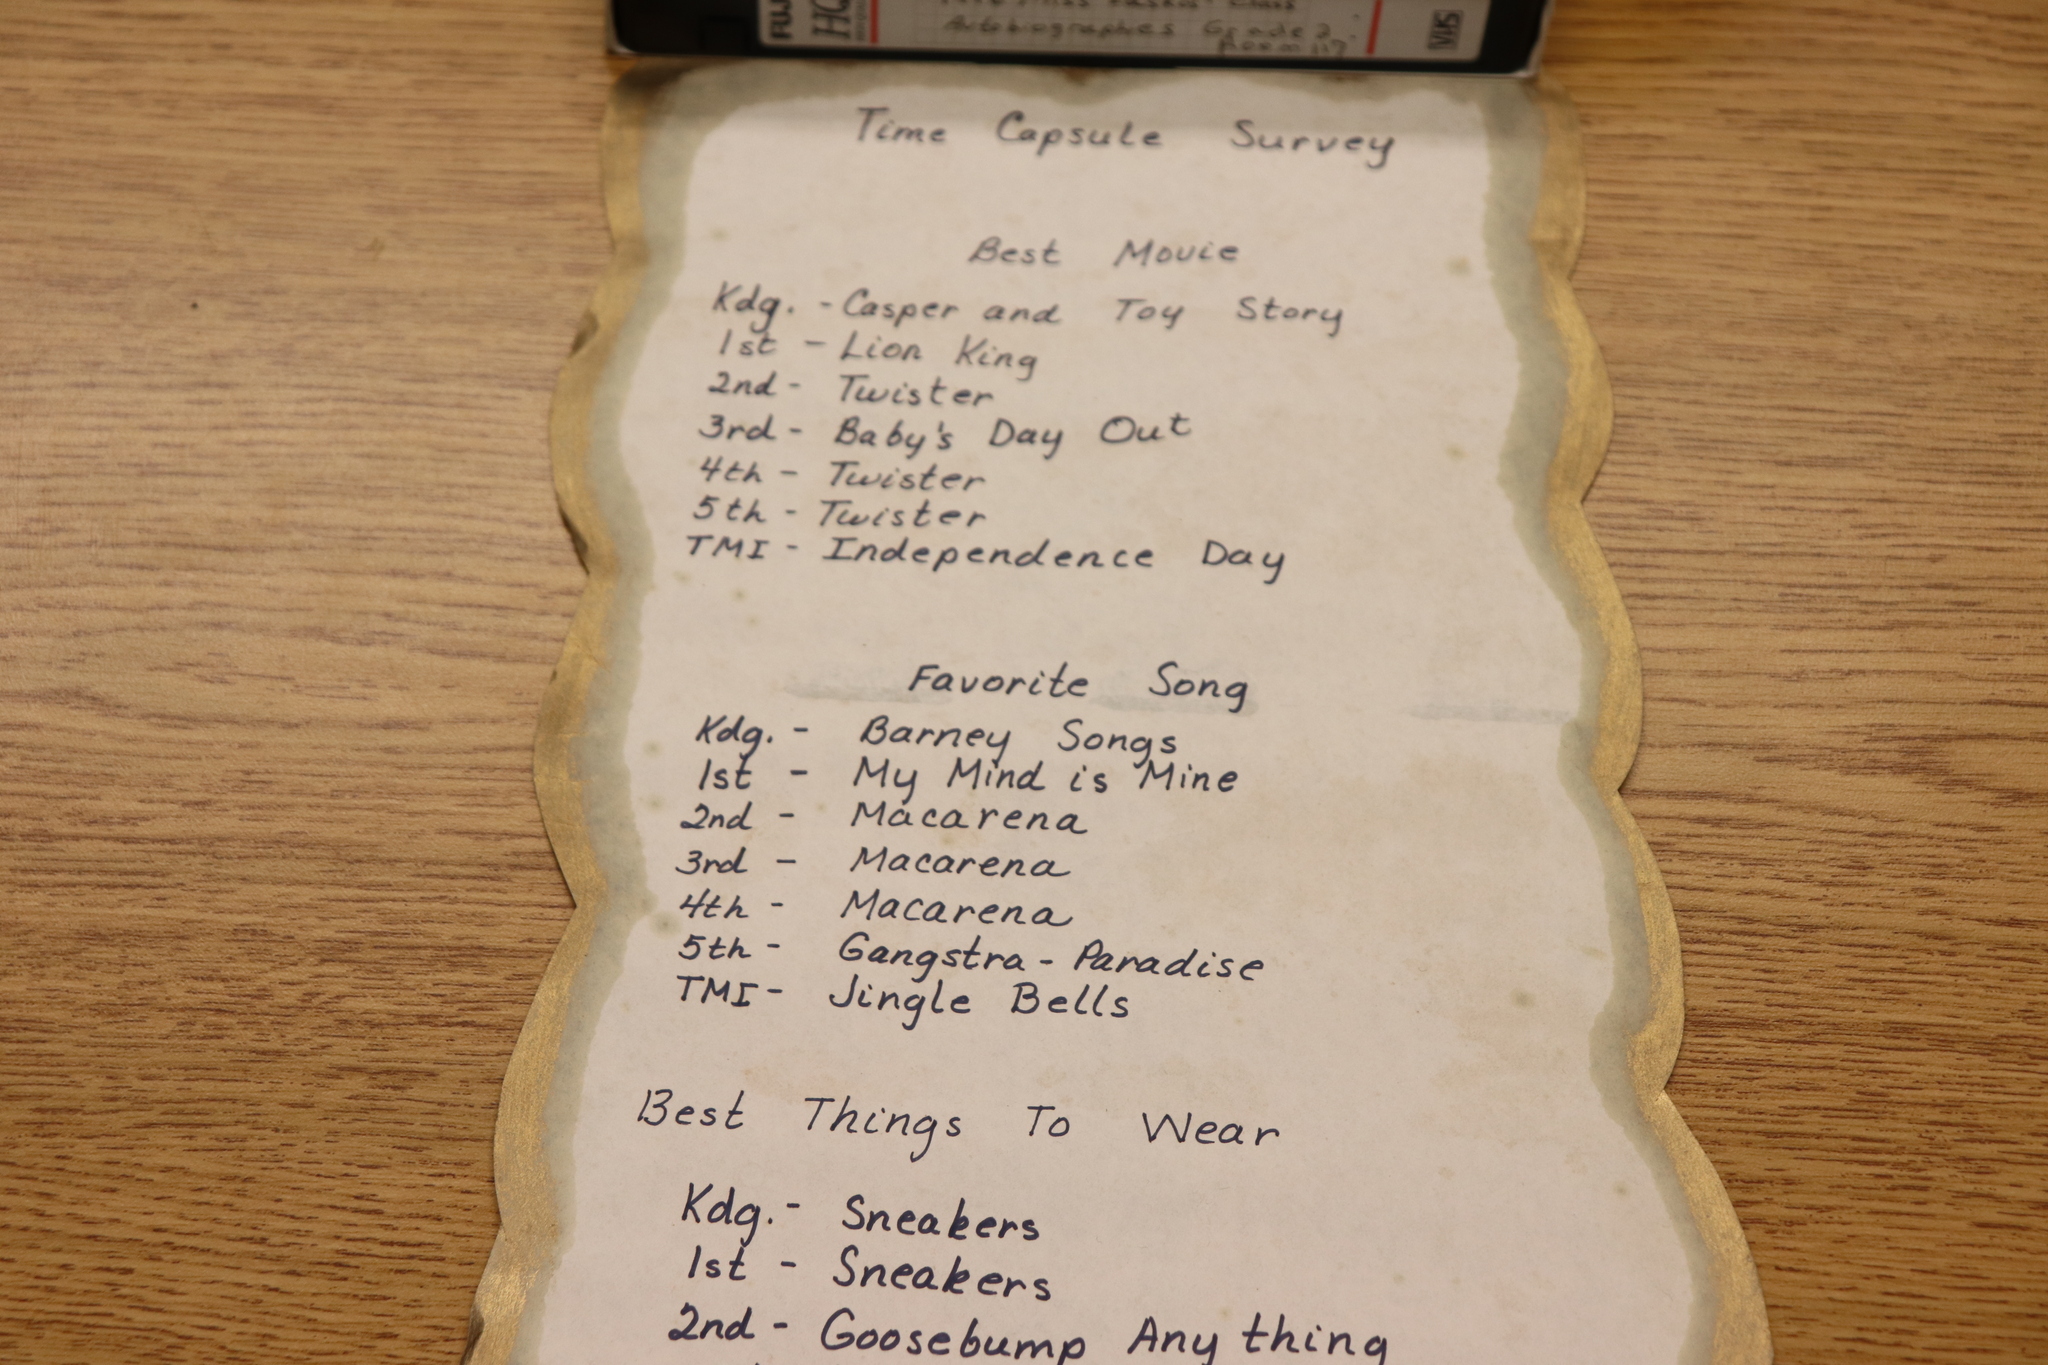 FUJI
HQ
VHS
Autobiographies Grade 2
Room 117
Time Capsule Survey
Best Movie
Kdg. - Casper and Toy Story
1st - Lion King
2nd - Twister
3rd - Baby's Day Out
4th - Twister
5th - Twister
TMI - Independence Day
Favorite Song
Kdg. - Barney Songs
1st - My Mind is Mine
2nd - Macarena
3rd - Macarena
4th - Macarena
5th - Gangstra - Paradise
TMI - Jingle Bells
Best Things To Wear
Kdg. - Sneakers
1st - Sneakers
2nd - Goosebump Any thing